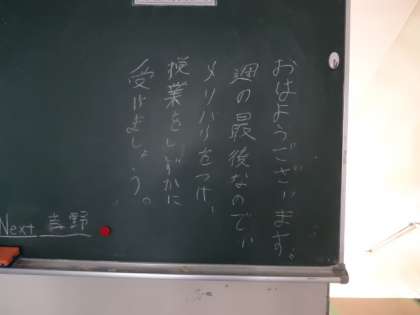 おはようございます。
週の最後なので、
メリハリをつけ、
授業をしずかに
受けましょう。
Next 吉野